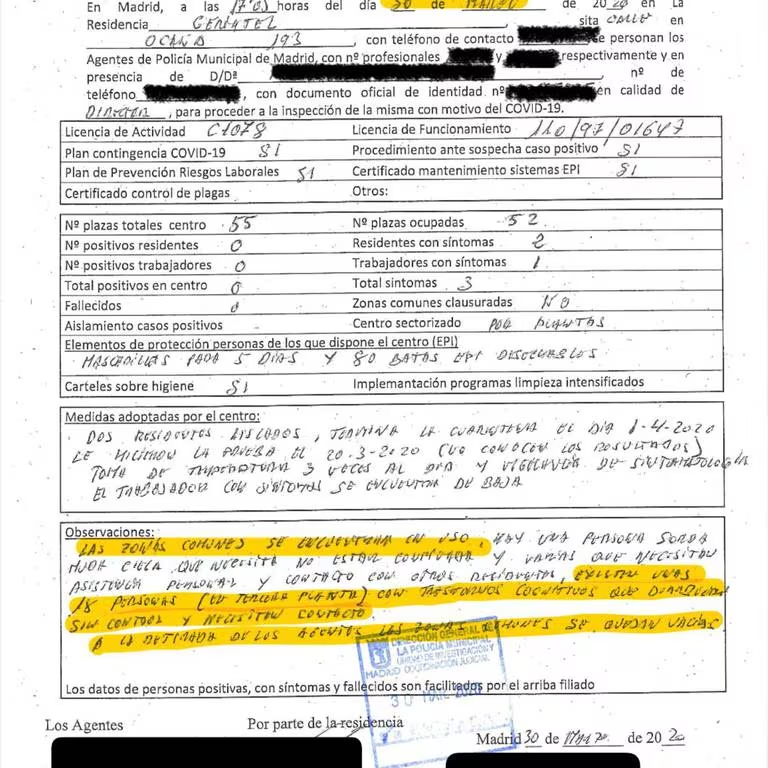 En Madrid, a las 17'05 horas del día 30 de Marzo de 2020 en La
Residencia GENATEL, sita CALLE en
OCAÑA 193, con teléfono de contacto se personan los
Agentes de Policía Municipal de Madrid, con nº profesionales y respectivamente y en
presencia de D/Dª nº de
teléfono, con documento oficial de identidad nº en calidad de
DIRECTOR, para proceder a la inspección de la misma con motivo del COVID-19.
Licencia de Actividad C1078 Licencia de Funcionamiento 110/97/01647
Plan contingencia COVID-19 SI Procedimiento ante sospecha caso positivo SI
Plan de Prevención Riesgos Laborales SI Certificado mantenimiento sistemas EPI SI
Certificado control de plagas Otros:
Nº plazas totales centro 55 Nº plazas ocupadas 52
Nº positivos residentes 0 Residentes con síntomas 2
Nº positivos trabajadores 0 Trabajadores con síntomas 1
Total positivos en centro 0 Total sintomas 3
Fallecidos 0 Zonas comunes clausuradas NO
Aislamiento casos positivos Centro sectorizado POR PLANTAS
Elementos de protección personas de los que dispone el centro (EPI)
MASCARILLAS PARA 5 DIAS Y 80 BATAS EPI DESECHABLES
Carteles sobre higiene SI Implementación programas limpieza intensificados
Medidas adoptadas por el centro:
DOS RESIDENTES AISLADOS, TERMINA LA CUARENTENA EL DIA 1-4-2020
LE HICIERON LA PRUEBA EL 20-3-2020 (NO CONOCEN LOS RESULTADOS)
TOMA DE TEMPERATURA 3 VECES AL DIA Y VIGILANCIA DE SINTOMATOLOGIA
EL TRABAJADOR CON SINTOMAS SE ENCUENTRA DE BAJA
Observaciones:
LAS ZONAS COMUNES SE ENCUENTRAN EN USO, HAY UNA PERSONA SORDA
MUDA CIEGA QUE NECESITA NO ESTAR CONFINADA Y VARIAS QUE NECESITAN
ASISTENCIA PERSONAL Y CONTACTO CON OTROS RESIDENTES, EXISTEN UNAS
18 PERSONAS (EN TERCERA PLANTA) CON TRASTORNOS COGNITIVOS QUE DEAMBULAN
SIN CONTROL Y NECESITAN CONTACTO.
A LA RETIRADA DE LOS AGENTES LAS ZONAS COMUNES SE QUEDAN VACIAS
DIRECCIÓN GENERAL DE
LA POLICIA MUNICIPAL
UNIDAD DE INVESTIGACIÓN Y
MADRID COORDINACIÓN JUDICIAL
30 MAR. 2020
Los datos de personas positivas, con síntomas y fallecidos son facilitados por el arriba filiado
Los Agentes Por parte de la residencia
Madrid 30 de Marzo de 2020